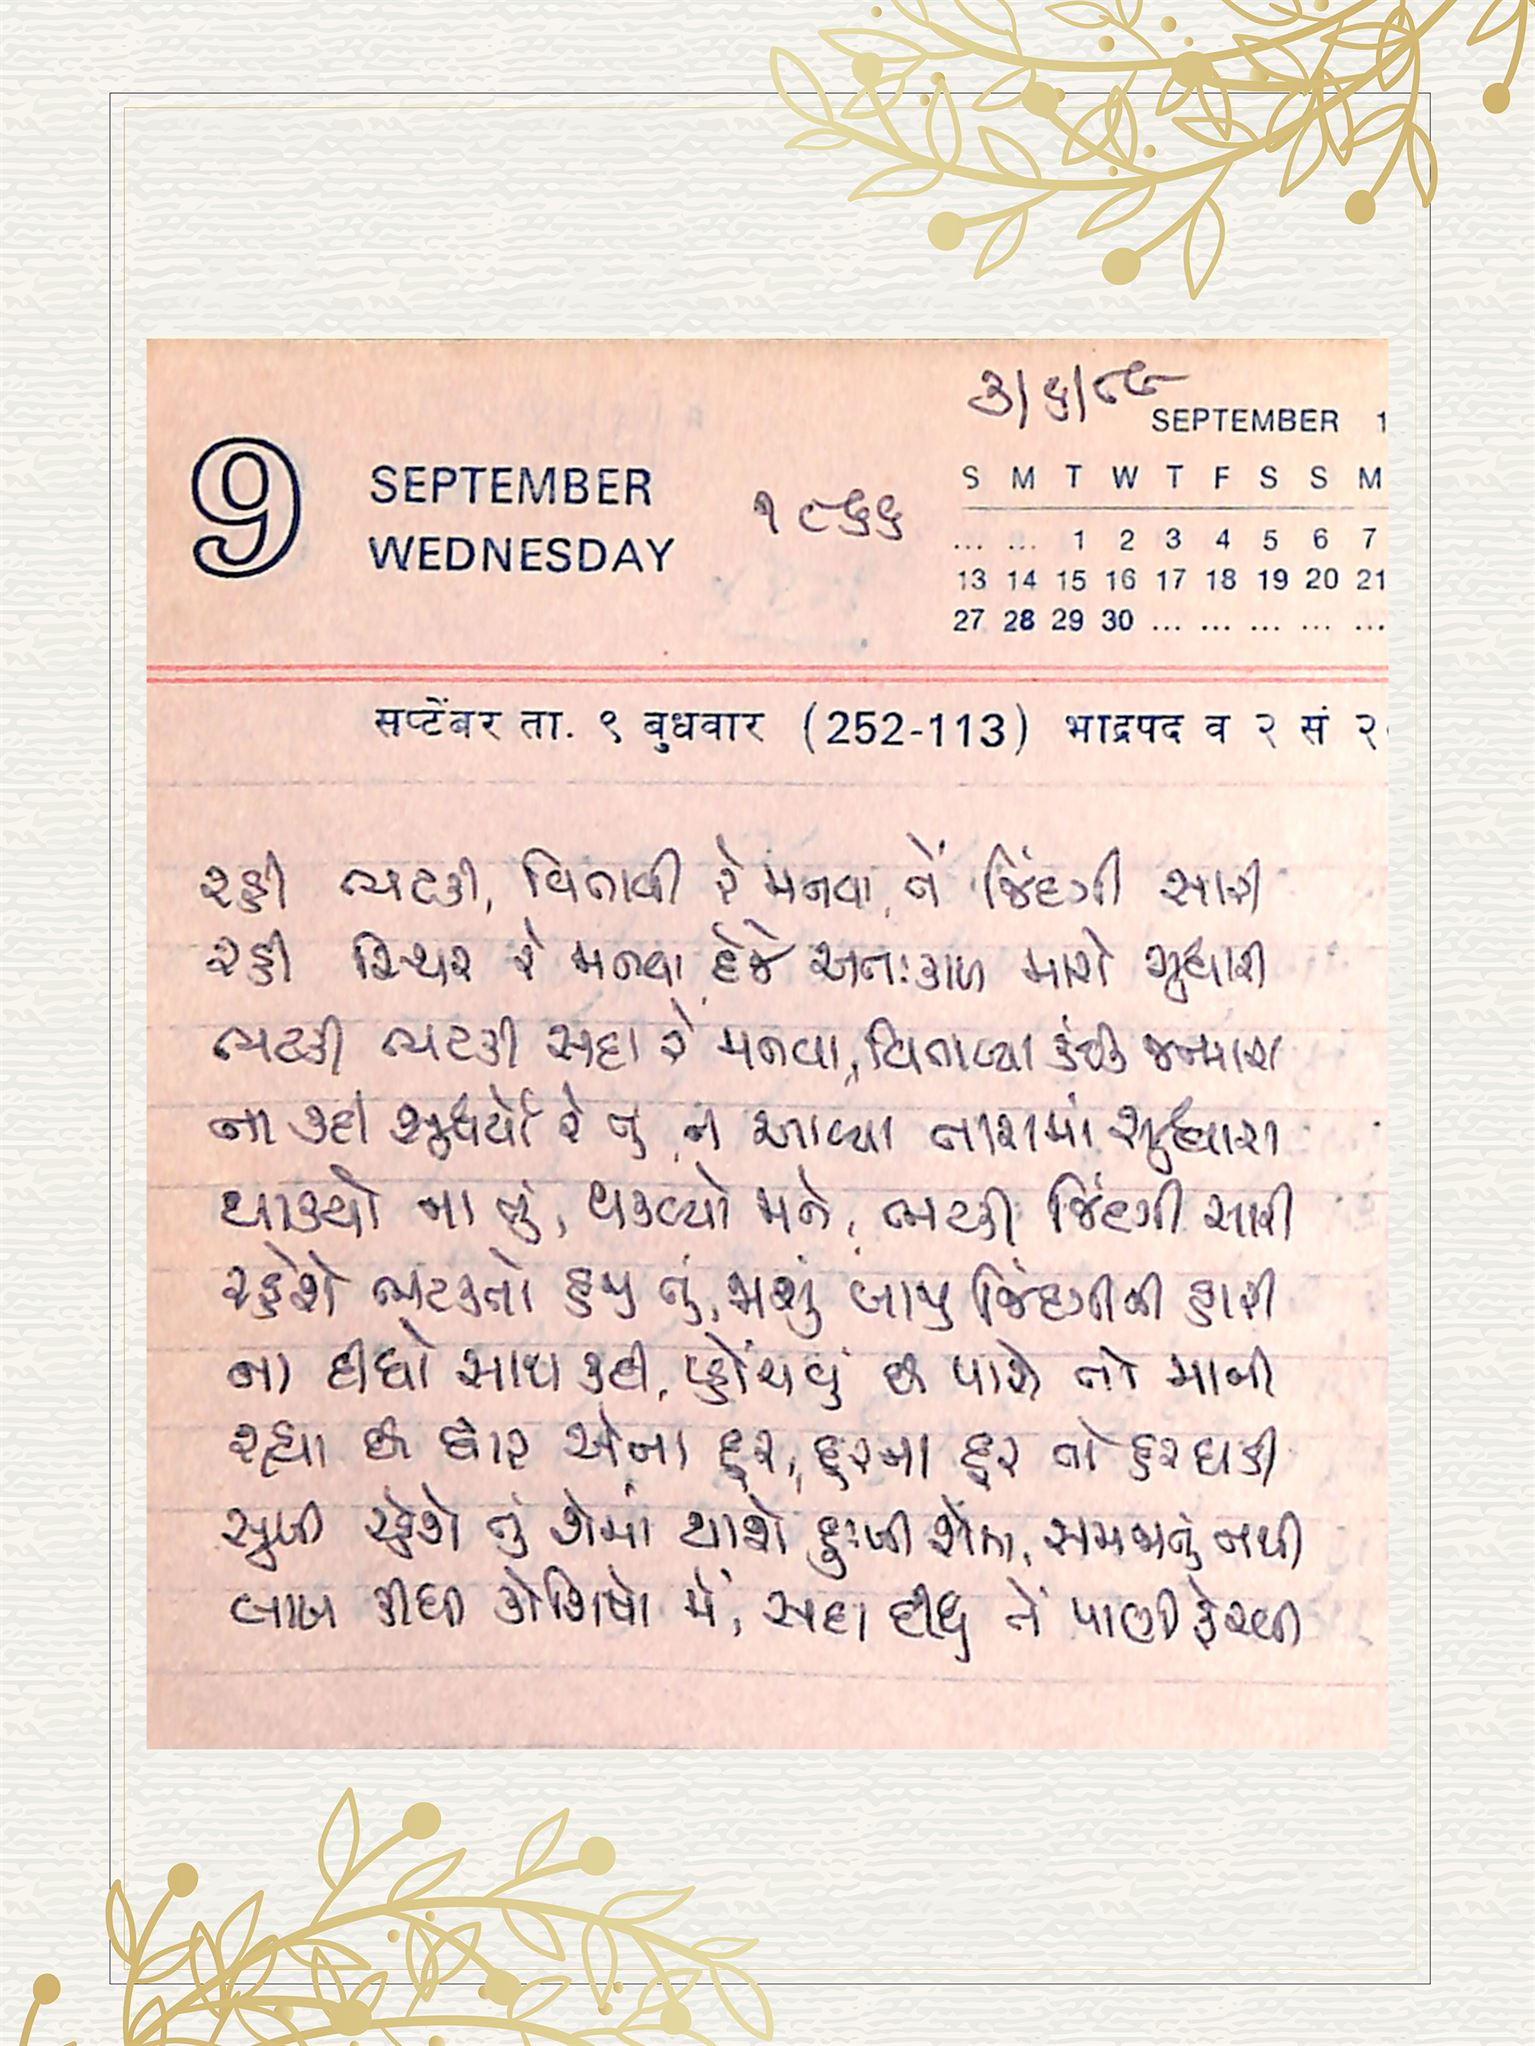 ૩/૬/૮૯
SEPTEMBER 1
9 SEPTEMBER
WEDNESDAY
૧૮૬૬
S M T W T F S S M
... ... 1 2 3 4 5 6 7
13 14 15 16 17 18 19 20 21
27 28 29 30 ... ... ... ... ...
सप्टेंबर ता. ९ बुधवार (252-113) भाद्रपद व २ सं २
રહી ભટકી, વિતાવી રે મનવા, તેં જિંદગી સારી
રહી સ્થિર રે મનવા દેજે અંતઃકાળ મારો સુધારી
ભટકી ભટકી સદા રે મનવા, વિતાવ્યા કંઈક જન્મારા
ના કદી સુધર્યો રે તું, ન આવ્યા તારામાં સુધારા
થાક્યો ના તું, થકવ્યો મને, ભટકી જિંદગી સારી
રહેશે ભટકતો હજુ તું, જાશું બાજી જિંદગીની હારી
ના દીધો સાથ કદી, પ્હોંચવું છે પાસે તો માની
રહ્યા છે દ્વાર એના દૂર, દૂરના દૂર તો હરઘડી
સુખી રહેશે તું શેમાં થાશે દુઃખી શેમાં, સમજાતું નથી
લાખ કીધી કોશિષો મેં, સદા દીધું તેં પાણી ફેરવી